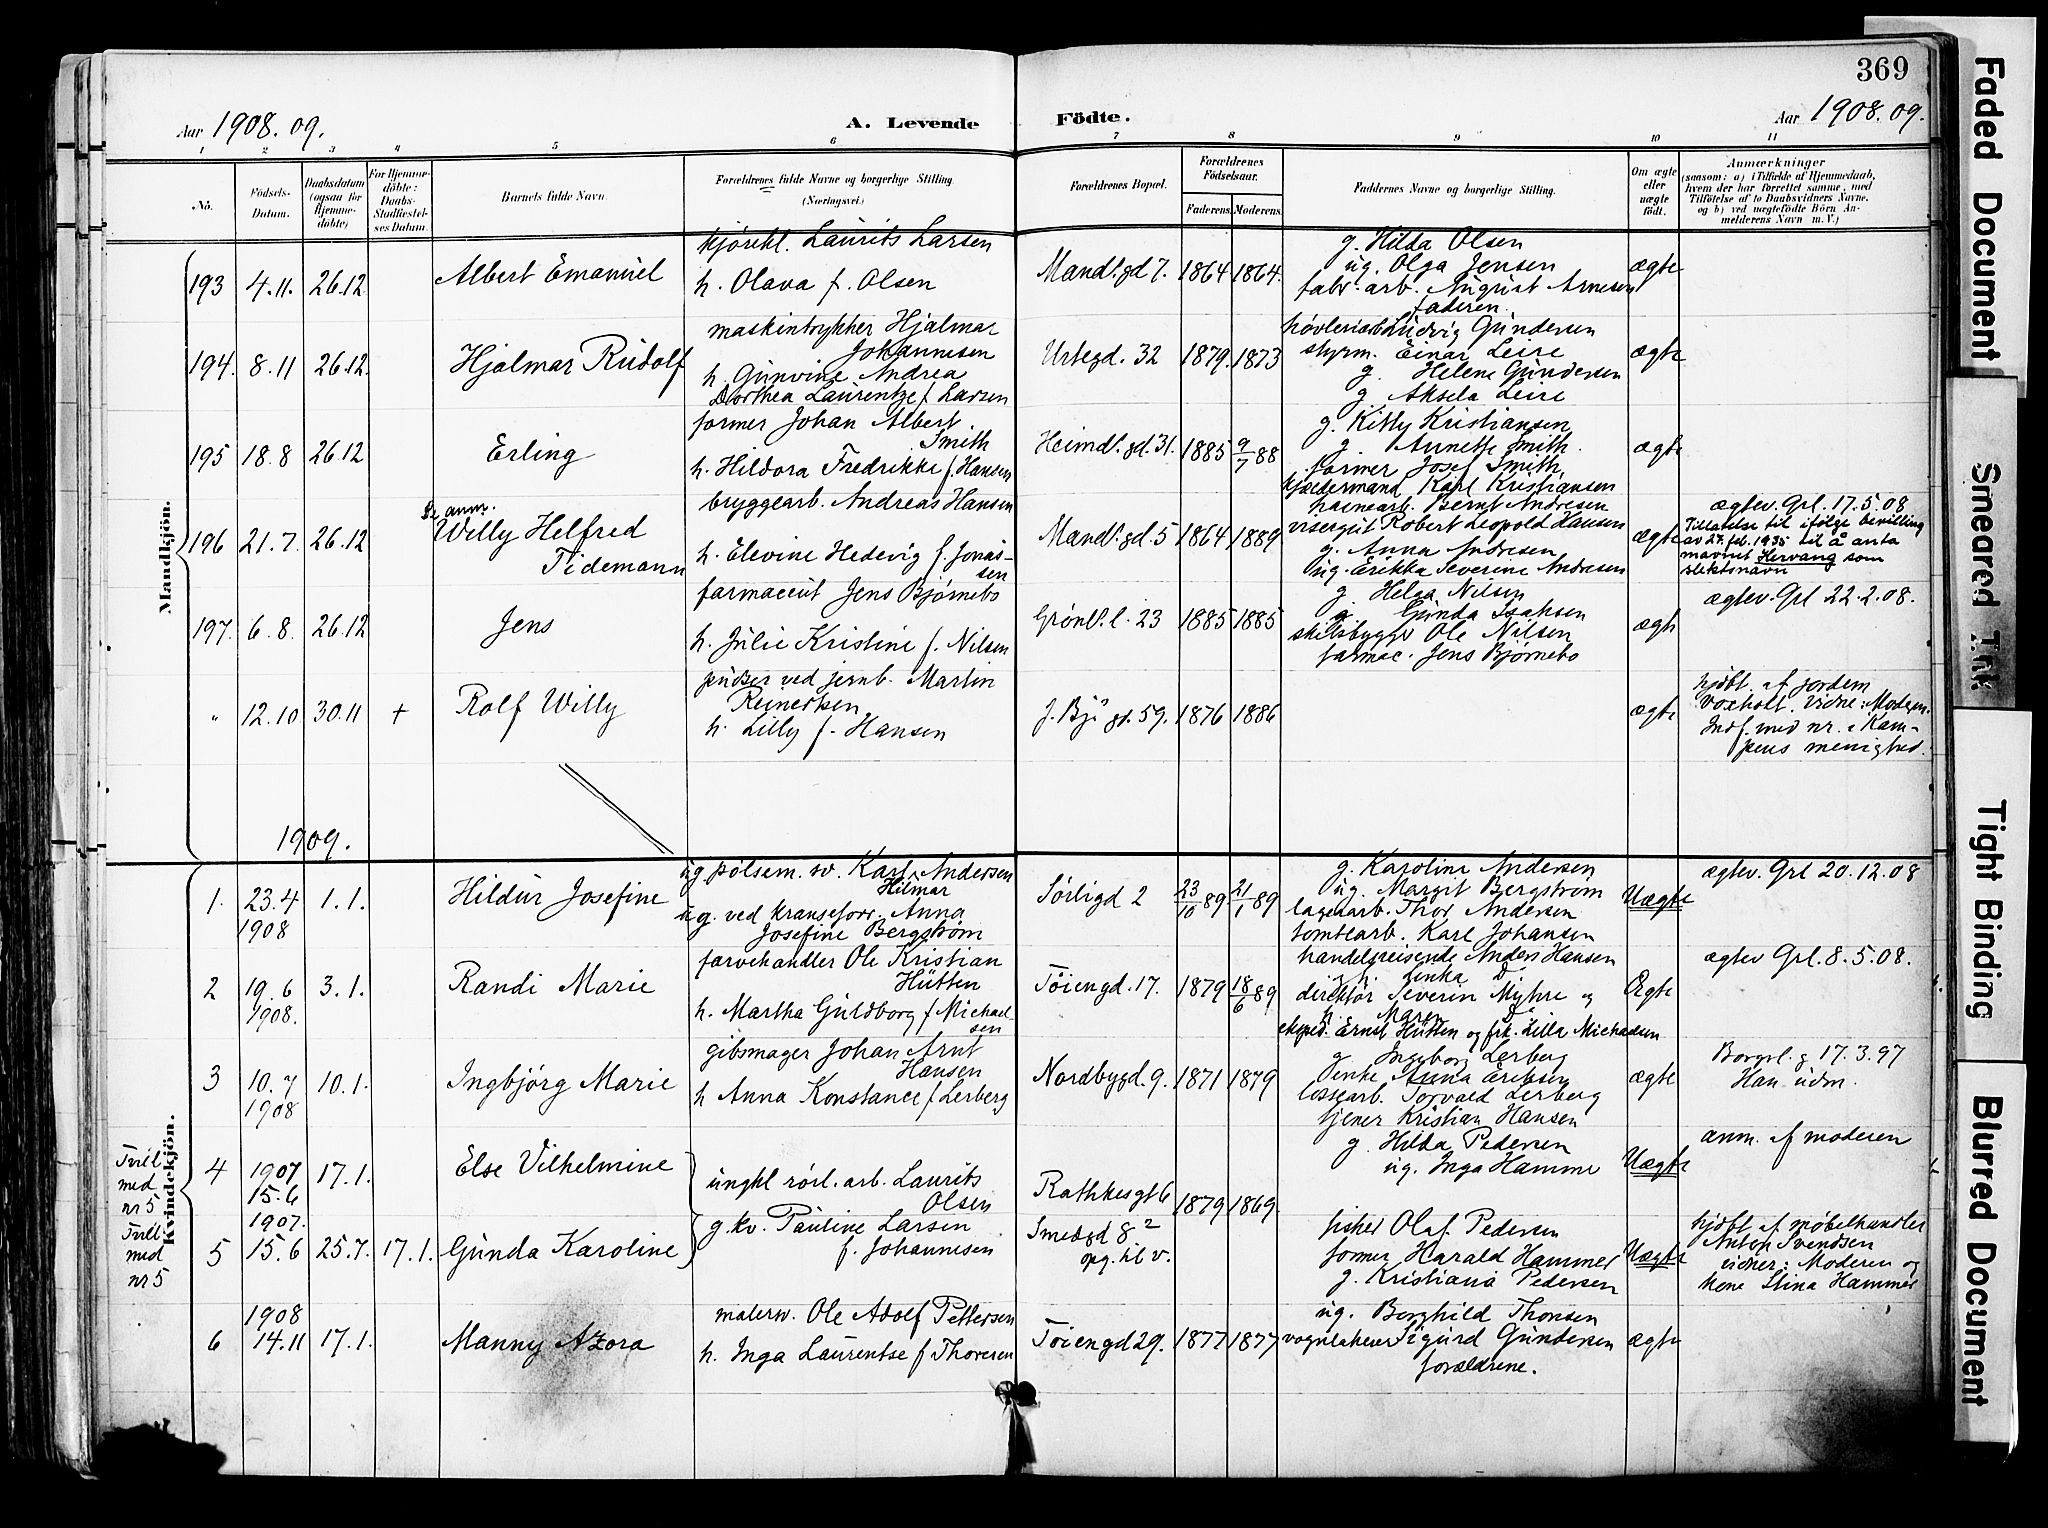 369
Aar 1908. 09. A. Levende Födte. Aar 1908. 09.
1 2 3 4 5 6 7 8 9 10 11
Nö.
Födsels-Datum.
Daabsdatum (ogsaa for Hjemmedöbte)
For Hjemmedöbte: Daabs-Stadfæstelses Datum.
Barnets fulde Navn
Forældrenes fulde Navne og borgerlige Stilling. (Næringsvei.)
Forældrenes Bopæl.
Forældrenes Födselsaar.
Faderens. Moderens.
Faddernes Navne og borgerlige Stilling.
Om ægte eller uægte födt.
Anmærkninger
(saasom: a) i Tilfælde af Hjemmedaab, hvem der har forrettet samme, med Tilföielse af to Daabsvidners Navne. og b) ved uægtefödte Börn Anmelderens Navn m. V.)
Mandkjön.
193 4.11. 26.12 Albert Emanuel
kjørekl. Laurits Larsen
h. Olava f. Olsen
Mandl.gd 7. 1864 1864.
g. Hilda Olsen
ug. Olga Jensen
fabr. arb. August Arnesen
faderen.
ægte
194. 8.11 26.12. Hjalmar Rudolf
maskintrykker Hjalmar
Johannesen
h. Gunvine Andrea
Dorthea Laurentze f Larsen
Urtegd. 32 1879. 1873
høvleriarb Ludvig Gundersen
styrm. Einar Leire
g. Helene Gundersen
g. Aksela Leire
ægte
195 18.8 26.12 Erling
former Johan Albert
Smith
h. Hildora Fredrikke f Hansen
Heimdl.gd.31. 1885 9/7 88
g. Kitty Kristiansen
g. Annette Smith.
former Josef Smith,
kjældermand Karl Kristiansen
ægte
196 21.7. 26.12
Se anm.
Willy Helfred
Tidemann
bryggearb. Andreas Hansen
h. Elevine Hedevig f. Jonas-
sen
Mandl.gd.5 1864 1889
havnearb. Bernt Andresen
visergut Robert Leopold Hansen
g. Anna Andresen
ug. Erikka Severine Andresen
ægte
ægtev. Grl. 17.5.08
Tillatelse til ifølge bevilling
av 27. feb. 1935 til å anta
navnet Hervang som
slektsnavn
197. 6.8. 26.12 Jens
farmaceut Jens Bjørnebo
h. Julie Kristine f. Nilsen
Grønl.l. 23 1885 1885
g. Helga Nilsen
g. Gunda Isaksen
skibsbygger Ole Nilsen
farmac. Jens Bjørnebo
ægte
ægtev. Grl 22.2.08.
" 12.10 30.11 + Rolf Willy
pudser ved jernb. Martin
Reinertsen
h. Lilly f. Hansen
J. Bj. gd. 59. 1876 1886
ægte
hjdbt. af jordem
Voxholt. Vidne: Modern.
Indf. med nr. i Kam-
pens menighed.
1909.
Kvindekjön.
1. 23.4 1908 1.1. Hildur Josefine
ug pølsem. sv. Karl Andersen
Hilmar
ug. ved kranseforr. Anna
Josefine Bergstrøm
Sørligd 2 23/10 89 21/1 89
g. Karoline Andersen
ug. Margit Bergstrøm
lagerarb. Thor Andersen
tomtearb. Karl Johansen
Uægte
ægtev. Grl 20.12.08
2 19.6 1908. 3.1. Randi Marie
farvehandler Ole Kristian
Hütten
h. Martha Guldborg f Michael-
sen
Tøiengd.17. 1879 18/6 89
handelsreisende Anders Hansen
direktør Severin Myhre og
h. Maren
eksped. Ernst Hütten og frk. Lilla Michaelsen
Ægte
ægtev Grl. 8.5.08.
3 10.7 1908 10.1. Ingbjörg Marie
gibsmager Johan Arnt
Hansen
h Anna Konstance f Lerberg
Nordbygd.9. 1871 1879
g. Ingeborg Lerberg
enke Anna Eriksen
lossearb. Torvald Lerberg
tjener Kristian Hansen
ægte
Borgerl. g 17.3.97
Han udm.
Tvill. med nr 5
4 1907 15.6 17.1. Else Vilhelmine
ungkl rørl. arb. Laurits
Olsen
g. kv. Pauline Larsen
f. Johannesen
Rathkesgt 6 1879 1869.
Smedgd 8²
opg. til v.
g. Hilda Pedersen
ug. Inga Hamme
Uægte
anm. af moderen
Tvill med nr 5
5 1907. 15.6 25.7. 17.1. Gunda Karoline
fisker Olaf Pedersen
former Harald Hammer
g. Kristiana Pedersen
Uægte
hjdbt af møbelhandler
Anton Svendsen
vidner: Moderen og
kone Stina Hammer
6 1908 14.11 17.1. Manny Azora
malersv. Ole Adolf Pettersen
h. Inga Laurentse f Thoresen
Tøiengd 29. 1877 1877
ug. Borghild Thorsen
vognlakerer Sigurd Gundersen
forældrene.
ægte
Faded Document
Smeared Ink
Tight Binding
Blurred Document